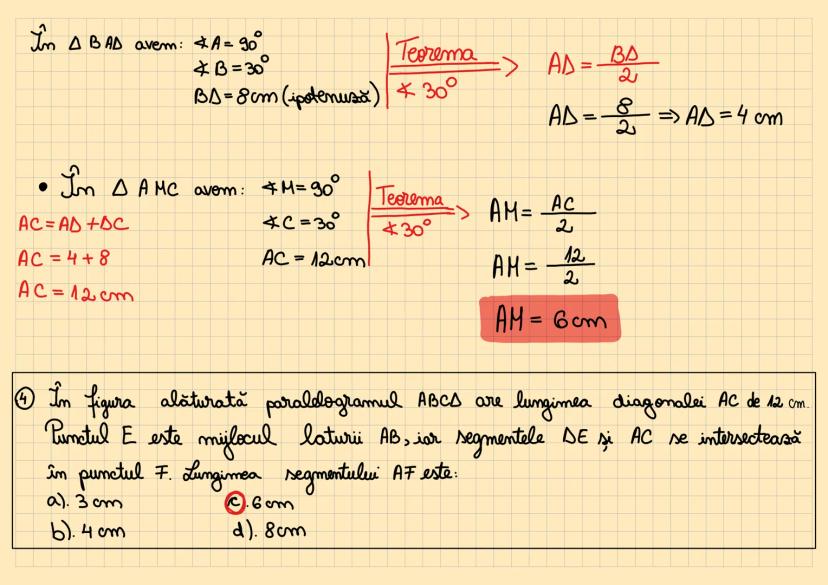 În Δ BAD avem: ∢A = 90°
∢B = 30°
BD = 8cm (ipotenuză)
Teorema
∢ 30°
⟹ AD = BD/2
AD = 8/2 ⇒ AD = 4 cm
• În Δ AMC avem: ∢M = 90°
∢C = 30°
AC = 12cm
AC = AD + DC
AC = 4 + 8
AC = 12 cm
Teorema
∢ 30°
⟹ AM = AC/2
AM = 12/2
AM = 6cm
④ În figura alăturată paralelogramul ABCD are lungimea diagonalei AC de 12 cm.
Punctul E este mijlocul laturii AB, iar segmentele DE și AC se intersectează
în punctul F. Lungimea segmentului AF este:
a). 3 cm c). 6 cm
b). 4 cm d). 8cm